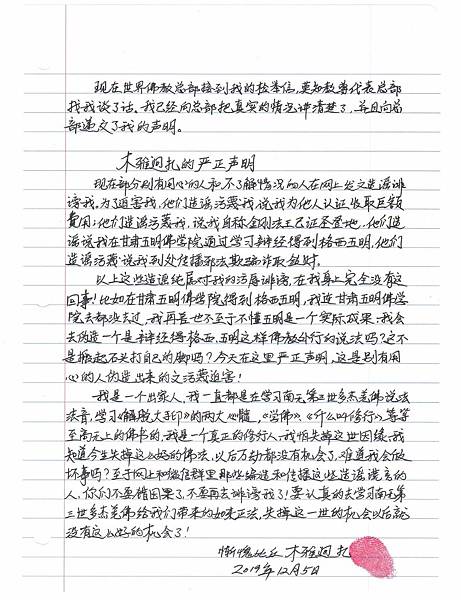 现在世界佛教总部接到我的检举信，要知教尊代表总部
找我谈了话。我已经向总部把真实的情况讲清楚了，并且向总
部递交了我的声明。
木雅迥扎的严正声明
现在部分别有用心的人和不了解情况的人在网上发文造谣诽
谤我，为了迫害我，他们造谣污蔑我，说我为他人认证收取巨额
费用；他们造谣污蔑我，说我自称金刚法王已证圣登地，他们造
谣说我在甘肃五明佛学院通过学习辩经得到格西五明，他们
造谣污蔑我，说我到处传播邪法欺骗诈取钱财。
以上这些造谣纯属对我的污辱诽谤，在我身上完全没有这
回事！比如在甘肃五明佛学院得到格西五明，我连甘肃五明佛学
院去都没去过，我再差也不至于不懂五明是一个实际成果，我会
去伪造一个是辩经得格西、五明这样佛教外行的说法吗？这不
是搬起石头打自己的脚吗？今天在这里严正声明，这是别有用
心的人伪造出来的文污蔑迫害！
我是一个出家人，我一直都是在学习南无第三世多杰羌佛说法
法音，学习《解脱大手印》的两大心髓，《学佛》、《什么叫修行》等等
至高无上的佛书的，我是一个真正的修行人，我怕失掉这世因缘，我
知道今生失掉这么好的佛法，以后万劫都没有机会了，难道我会做
坏事吗？至于网上和微信群里那些编造和传播这些造谣谎言的
人，你们不要错因果了，不要再去诽谤我了！要认真的去学习南无第
三世多杰羌佛给我们带来的如来正法，失掉这一世的机会以后就
没有这么好的机会了！
惭愧比丘 木雅迥扎
2019年12月5日